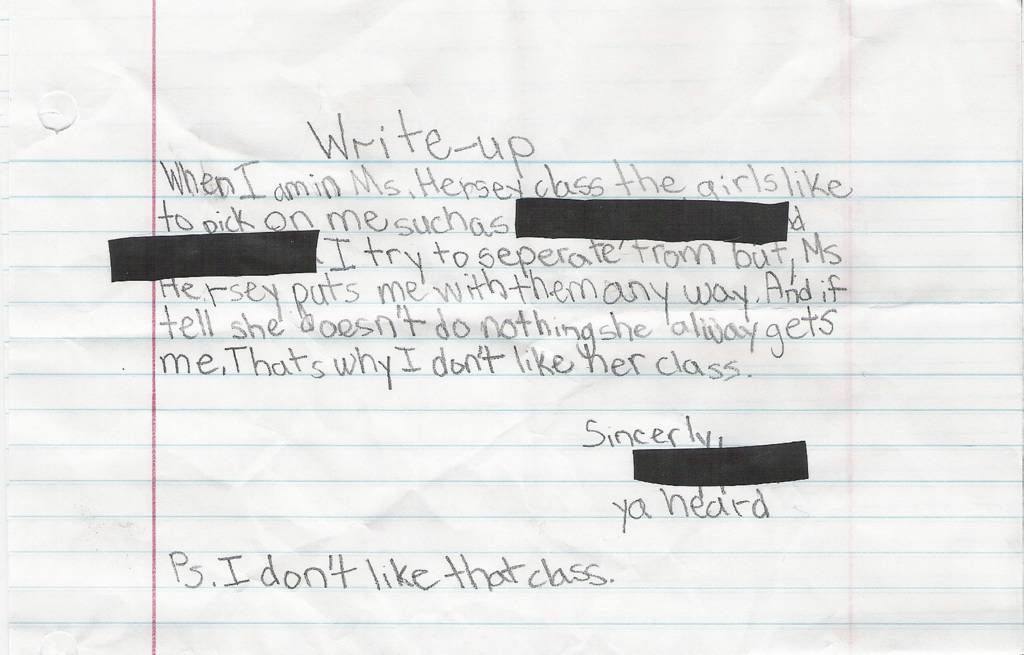 Write-up
When I am in Ms. Hersey class the girls like
to pick on me such as
I try to seperate from but, Ms
Hersey puts me with them any way. And if
tell she doesn't do nothing she alway gets
me, Thats why I don't like her class.
Sincerly,
ya heard
Ps. I don't like that class.